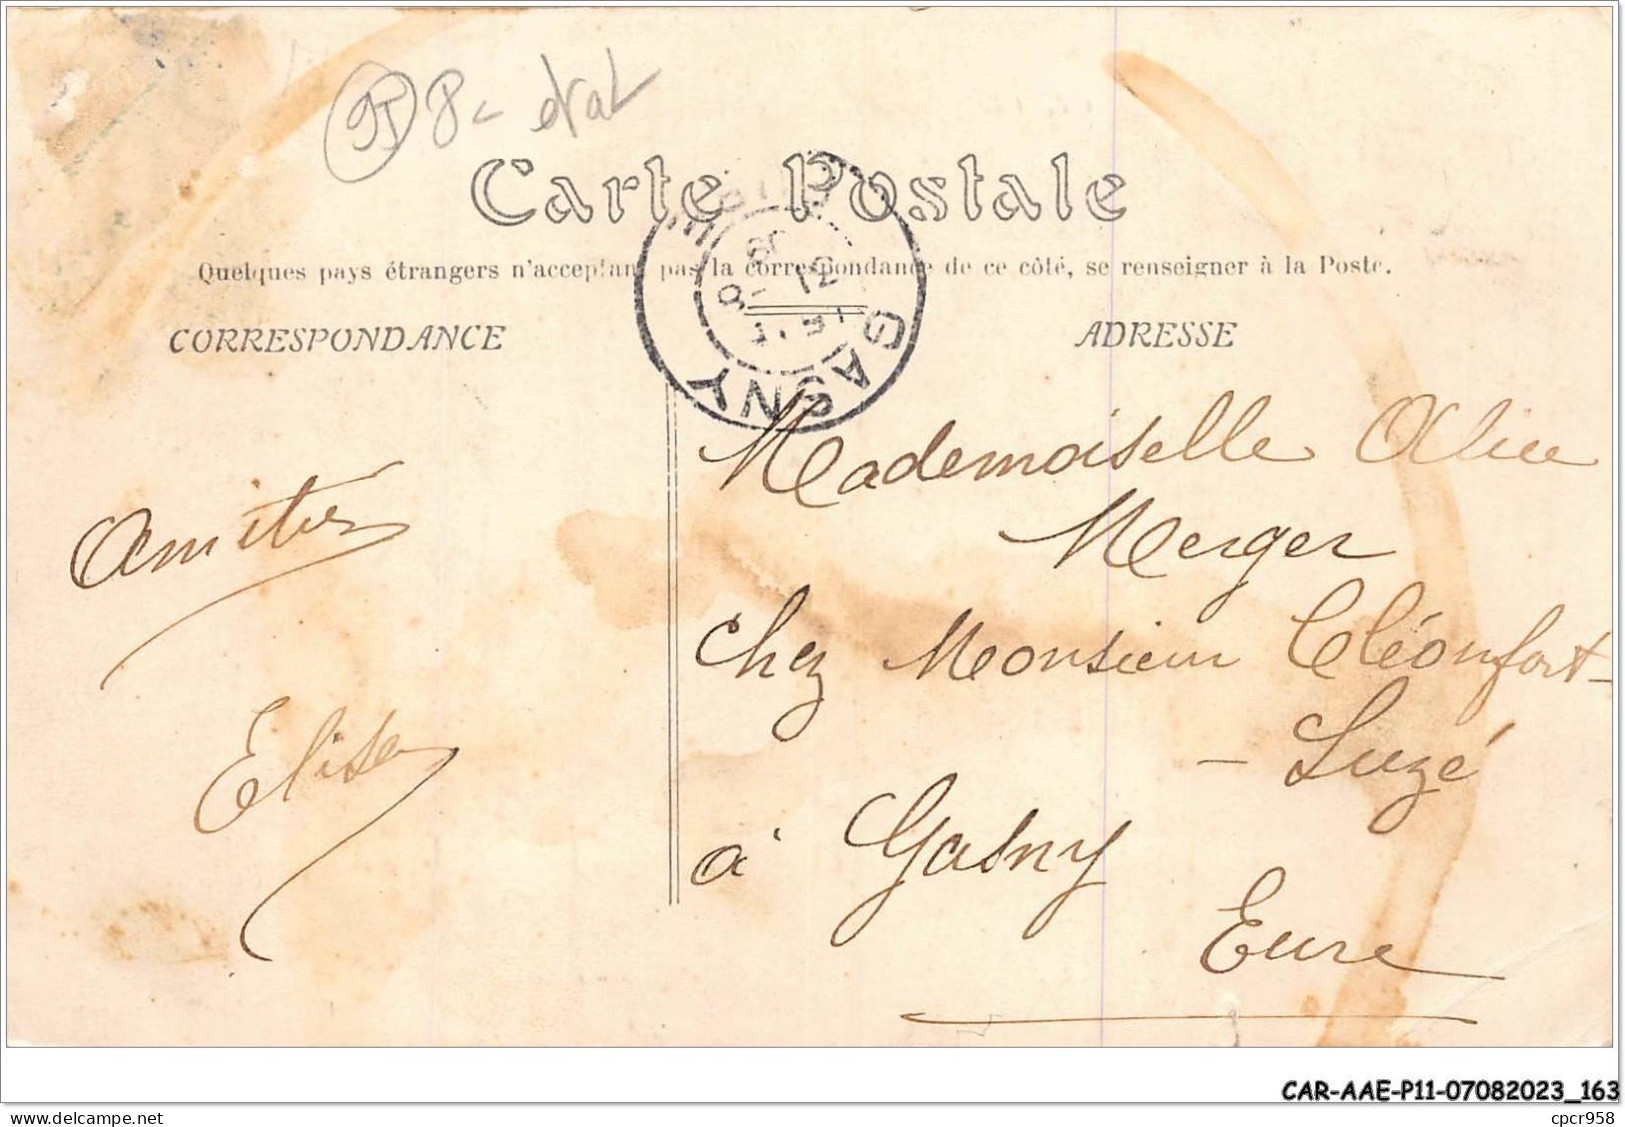 95 8- état
Carte Postale
Quelques pays étrangers n'acceptant pas la correspondance de ce côté, se renseigner à la Poste.
CORRESPONDANCE
ADRESSE
GASNY
Mademoiselle Alice
Merger
chez Monsieur Cléonfort-
- Luzé
à Gasny
Eure
Amitiés
Elise
CAR-AAE-P11-07082023_163
www.delcampe.net
cpcr958